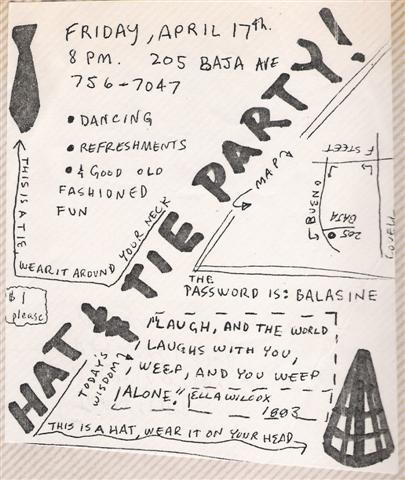 FRIDAY, APRIL 17th.
8 PM. 205 BAJA AVE
756-7047
• DANCING
• REFRESHMENTS
• & GOOD OLD
FASHIONED
FUN
THIS IS A TIE
WEAR IT AROUND YOUR NECK
HAT & TIE PARTY!
MAP
F STEET
BUENO
205
BAJA
COVELL
THE
PASSWORD IS: BALASINE
$1
please
TODAY'S
WISDOM
"LAUGH, AND THE WORLD
LAUGHS WITH YOU,
WEEP, AND YOU WEEP
ALONE." ELLA WILCOX
1883
THIS IS A HAT, WEAR IT ON YOUR HEAD